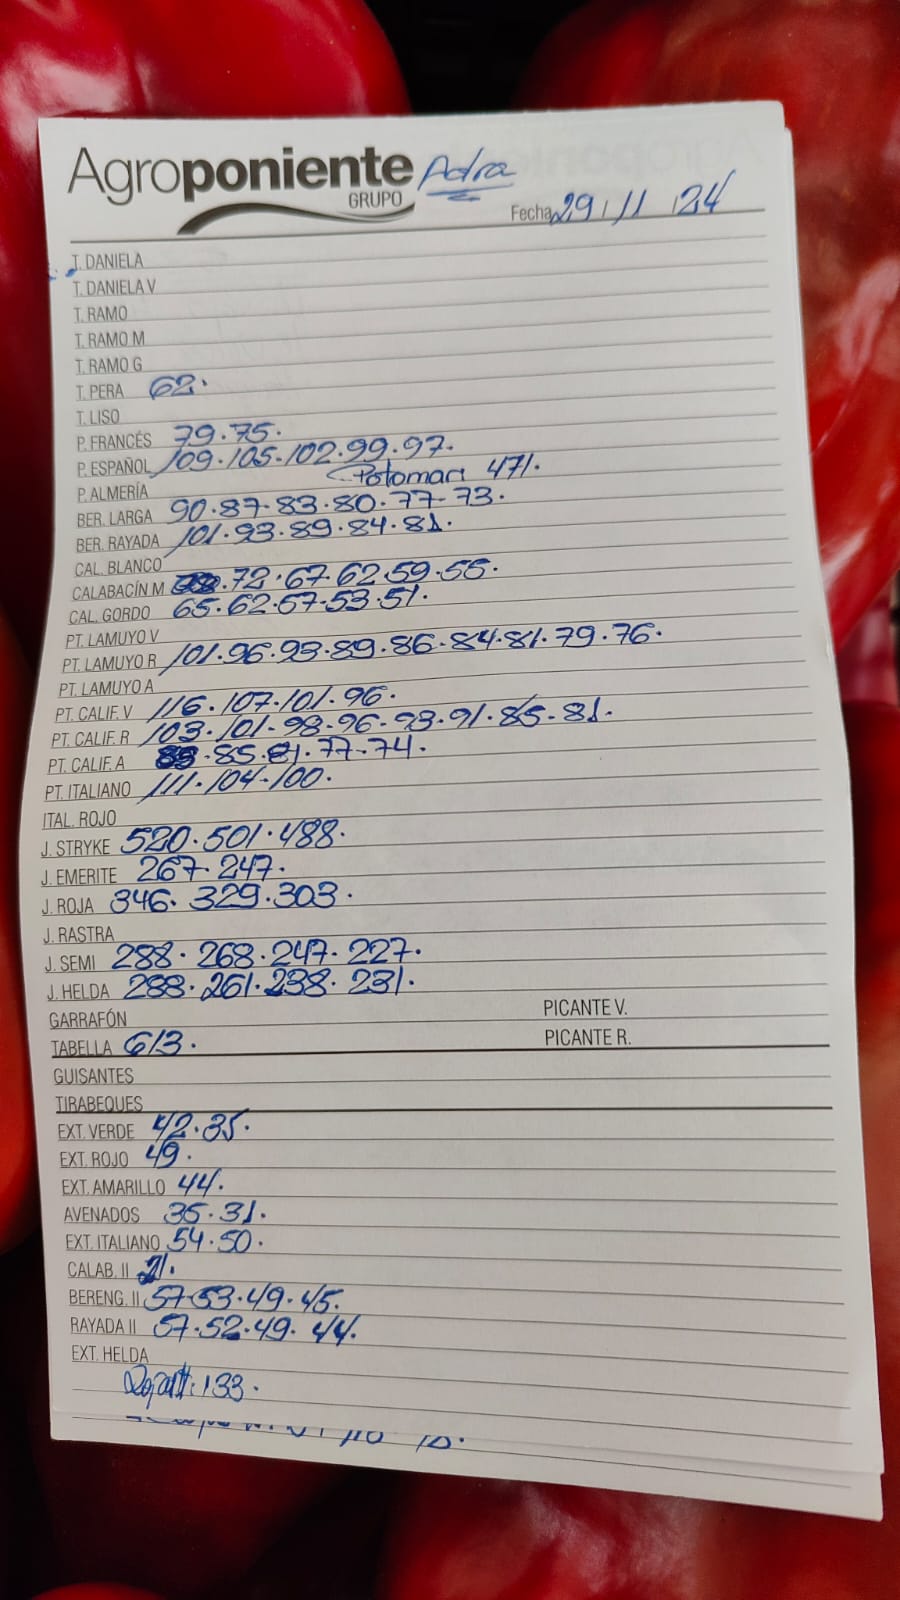 Agroponiente Adra
GRUPO
Fecha 29/11/24
T. DANIELA
T. DANIELA V
T. RAMO
T. RAMO M
T. RAMO G
T. PERA 62.
T. LISO
P. FRANCÉS 79.75.
P. ESPAÑOL 109.105.102.99.97.
Potomari 471.
P. ALMERÍA
BER. LARGA 90.87.83.80.77.73.
BER. RAYADA 101.93.89.84.81.
CAL. BLANCO
CALABACÍN M .72.67.62.59.55.
CAL. GORDO 65.62.57.53.51.
PT. LAMUYO V
PT. LAMUYO R 101.96.93.89.86.84.81.79.76.
PT. LAMUYO A
PT. CALIF. V 116.107.101.96.
PT. CALIF. R 103.101.98.96.93.91.85.81.
PT. CALIF. A .85.81.77.74.
PT. ITALIANO 111.104.100.
ITAL. ROJO
J. STRYKE 520.501.488.
J. EMERITE 267.247.
J. ROJA 346.329.303.
J. RASTRA
J. SEMI 288.268.247.227.
J. HELDA 288.261.238.231.
GARRAFÓN PICANTE V.
TABELLA 613. PICANTE R.
GUISANTES
TIRABEQUES
EXT. VERDE 42.35.
EXT. ROJO 49.
EXT. AMARILLO 44.
AVENADOS 35.31.
EXT. ITALIANO 54.50.
CALAB. II 21.
BERENG. II 57.53.49.45.
RAYADA II 57.52.49.44.
EXT. HELDA
133.